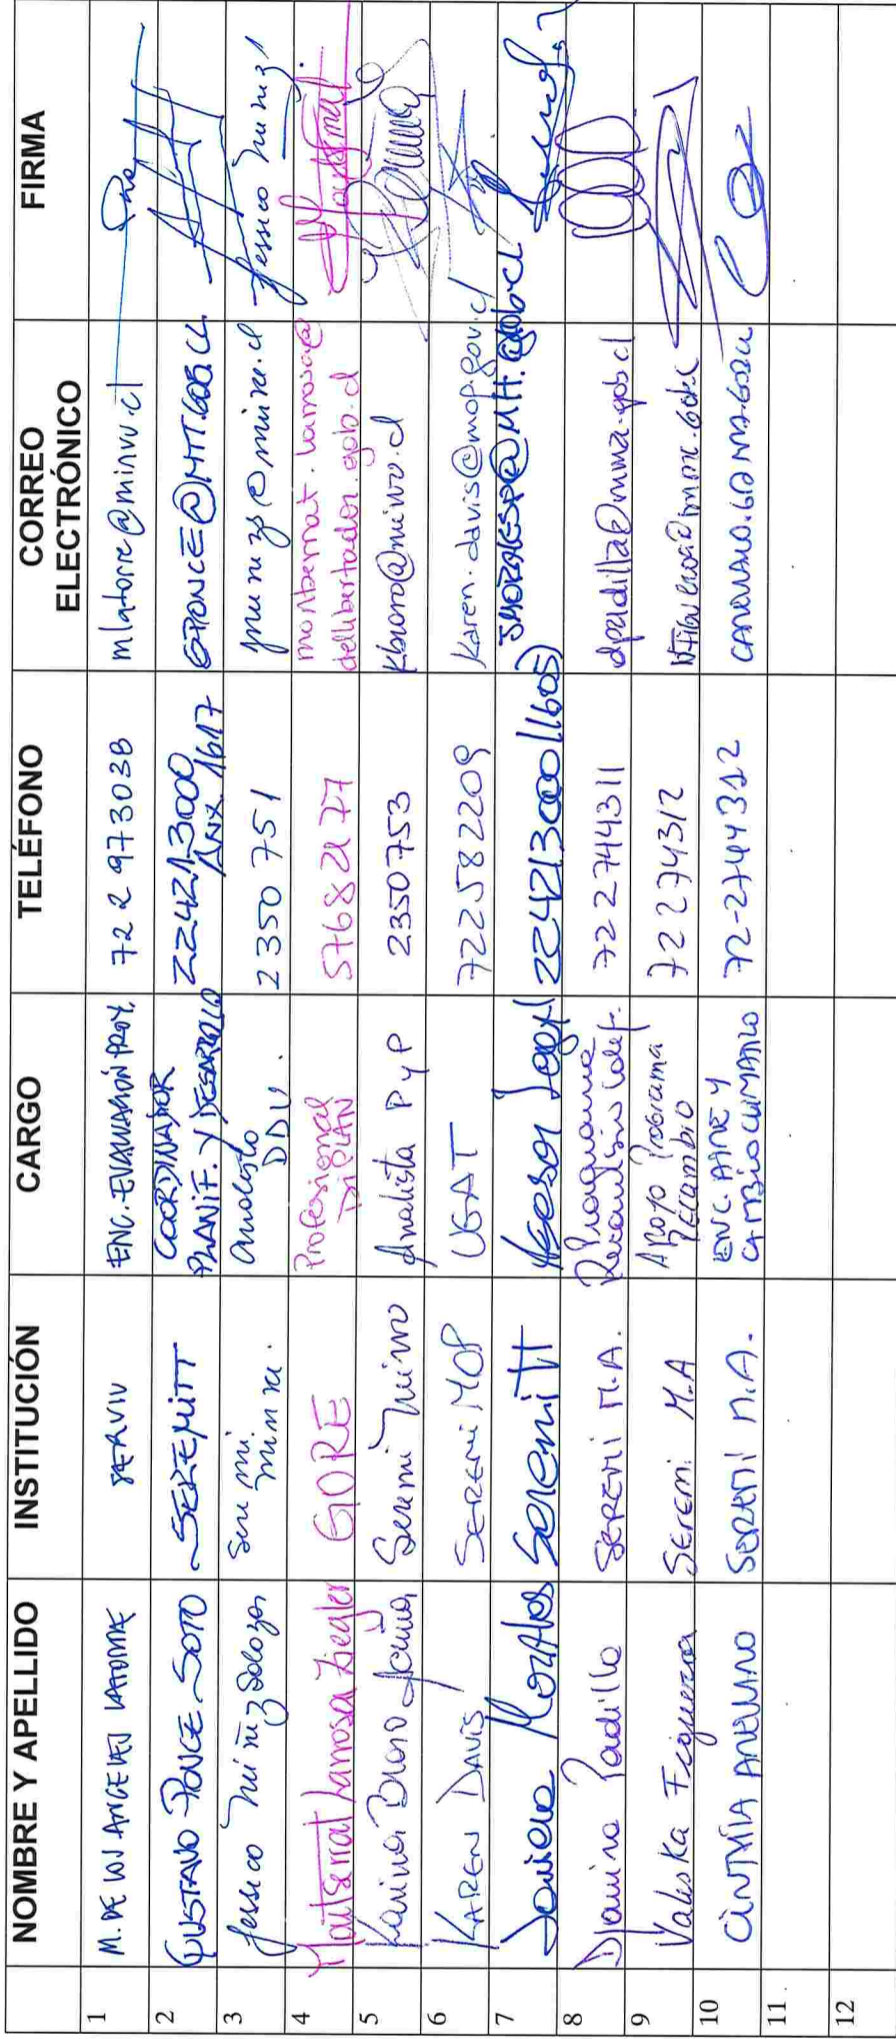 NOMBRE Y APELLIDO INSTITUCIÓN CARGO TELÉFONO CORREO ELECTRÓNICO FIRMA
1 M. DE LOS ANGELES LATORRE SERVIU ENC. EVALUACIÓN PROY. 72 2 973038 mlatorre@minvu.cl
2 GUSTAVO PONCE SOTO SEREMITT COORDINADOR PLANIF. Y DESARROLLO 224213000 ANX. 1617 GPONCE@MTT.GOB.CL
3 Jessica Nuñez Salazar Seremi Minvu. Analista DDU. 2350751 jnunezs@minvu.cl Jessica Nunez
4 Montserrat Larrosa Ziegler GORE Profesional DIPLAN 57682177 montserrat.larrosa@dellibertador.gob.cl
5 Karina Bravo Seremi Minvo Analista PyP 2350753 kbravo@minvo.cl
6 KAREN DAVIS SEREMI MOP UGAT 722582209 Karen.davis@mop.gov.cl
7 Morales SeremiTT Asesor Legal 224213000(1605)
8 Padilla SEREMI M.A. Programa 72 2744311 dpadilla@mma.gob.cl
9 Valeska Figueroa Seremi M.A Apoyo Programa Recambio 72 274312
10 CINTHIA SEREMI M.A. ENC. AIRE Y CAMBIO CLIMATICO 72-2744312
11
12